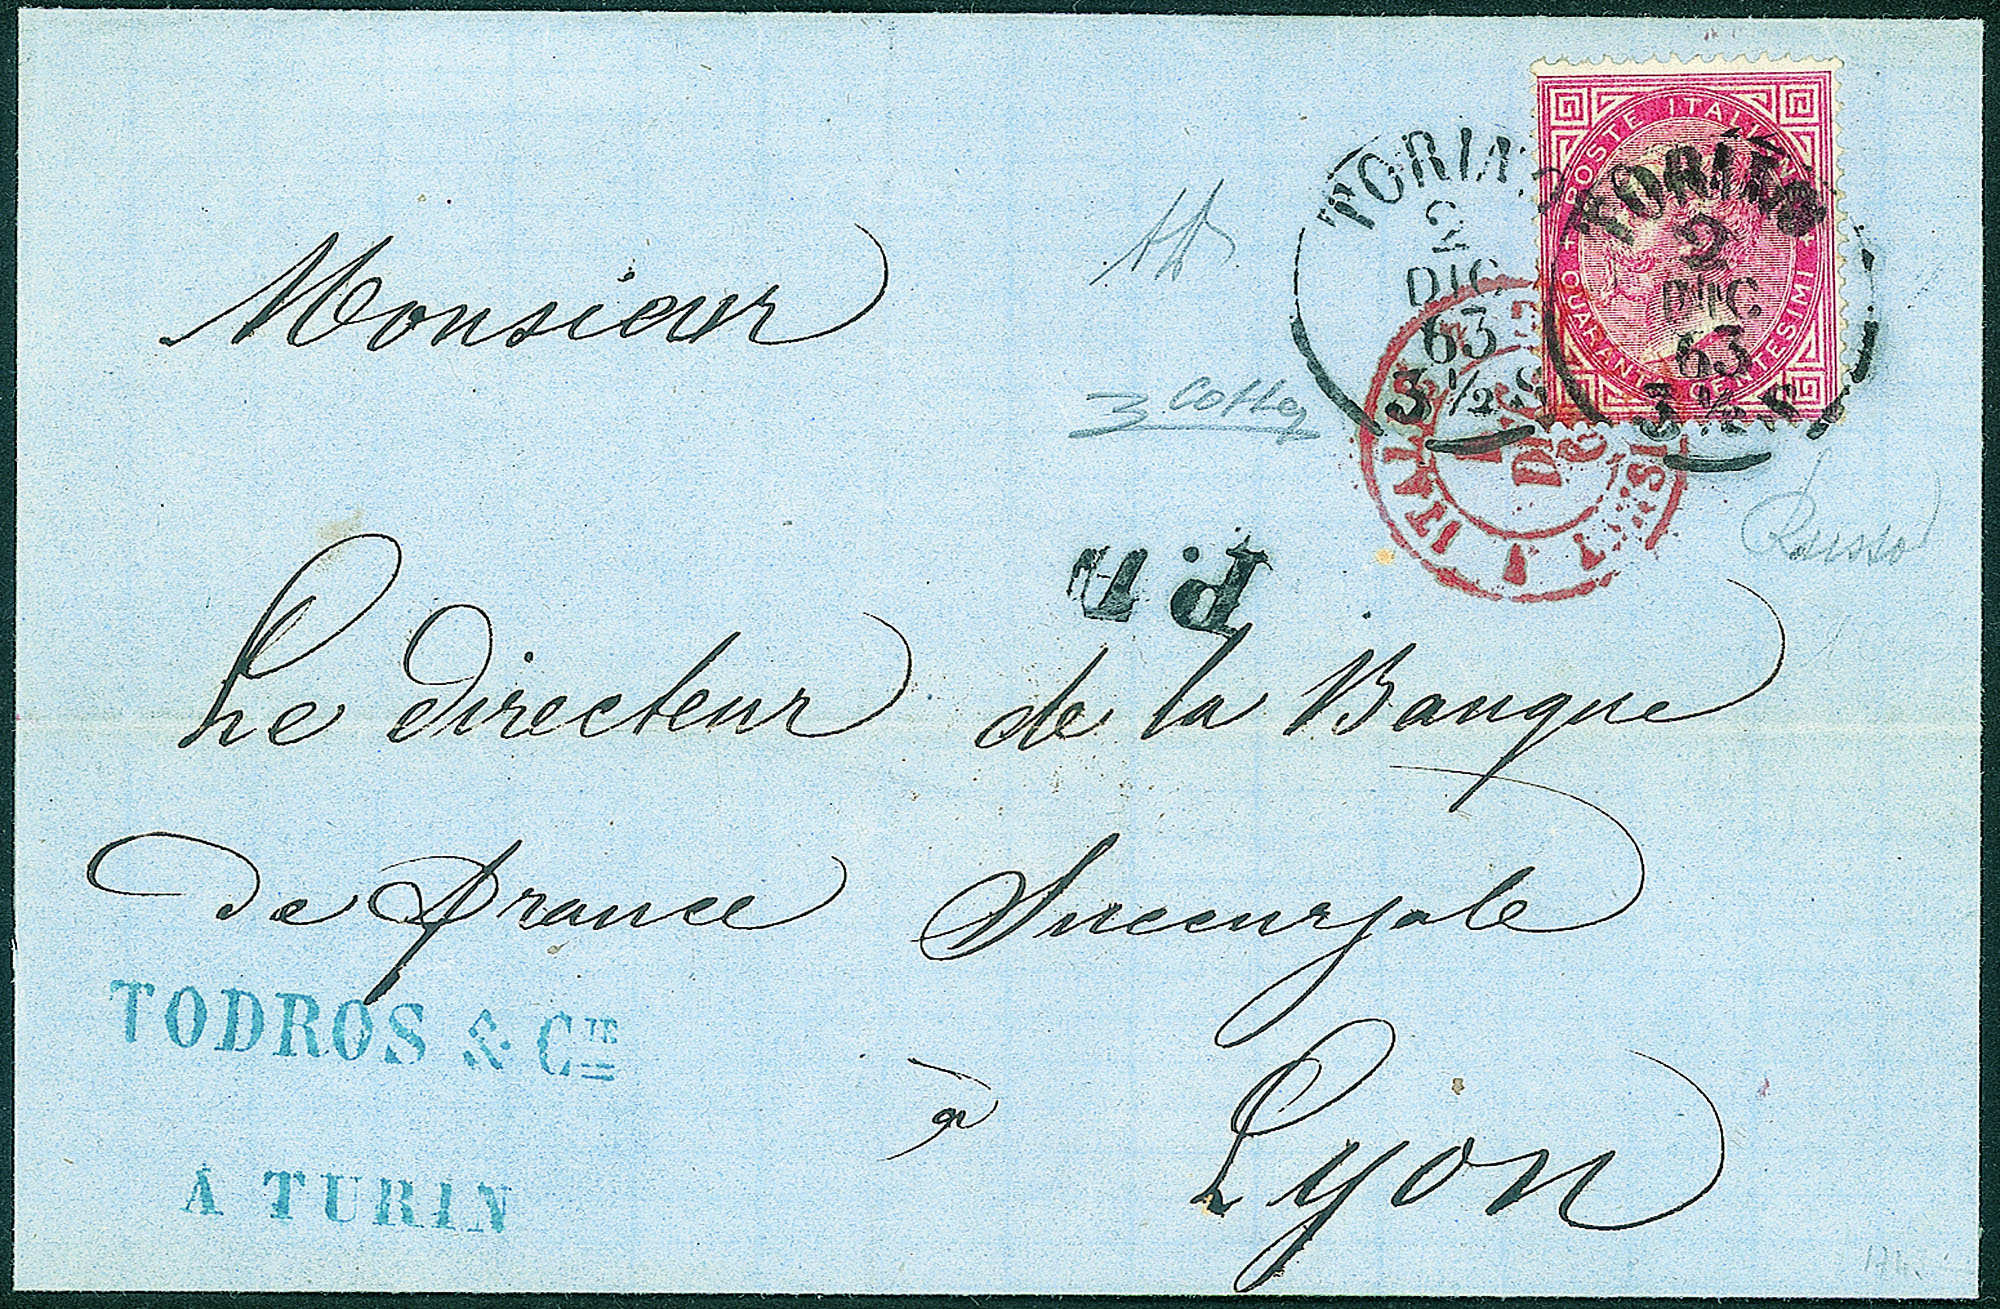 POSTE ITALIANE
QUARANTA CENTESIMI
TORINO
2
DIC
63
3 ½ S
TORINO
2
DIC
63
3 ½ S
ITALIE
P.D.
Monsieur
Le directeur de la Banque
de france Succursale
à Lyon
TODROS & CIE
A TURIN